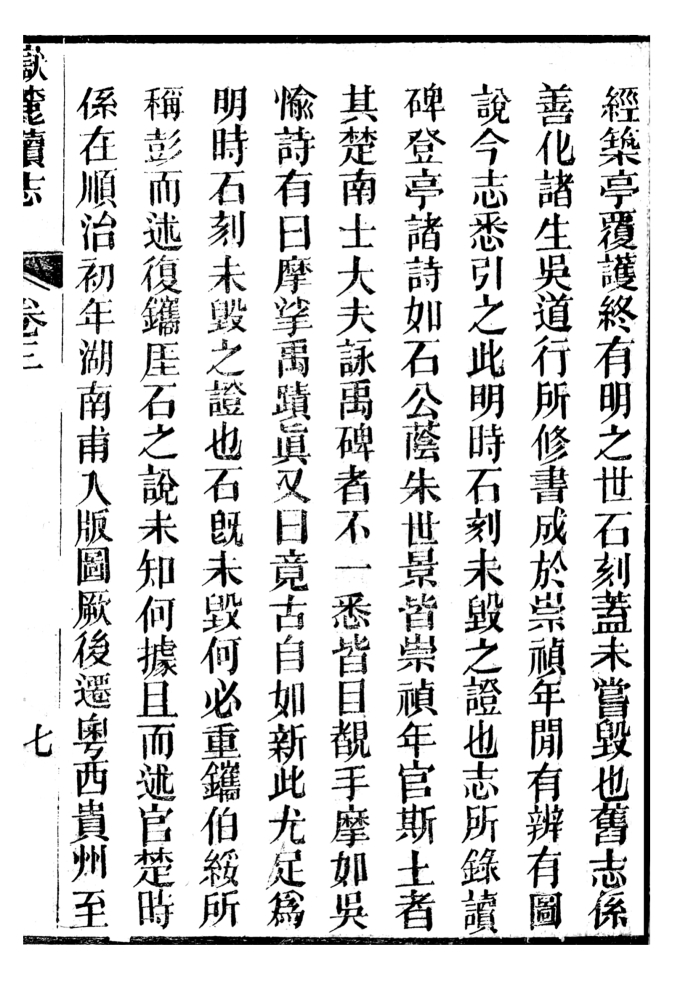 經築亭覆護終有明之世石刻蓋未嘗毀也舊志係
善化諸生吳道行所修書成於崇禎年閒有辨有圖
說今志悉引之此明時石刻未毀之證也志所錄讀
碑登亭諸詩如石公蔭朱世景皆崇禎年官斯土者
其楚南士大夫詠禹碑者不一悉皆目覩手摩如吳
愉詩有曰摩挲禹蹟眞又曰竟古自如新此尤足爲
明時石刻未毀之證也石旣未毀何必重鐫伯綏所
稱彭而述復鐫厓石之說未知何據且而述官楚時
係在順治初年湖南甫入版圖厥後遷粵西貴州至
嶽麓續志 卷三 七